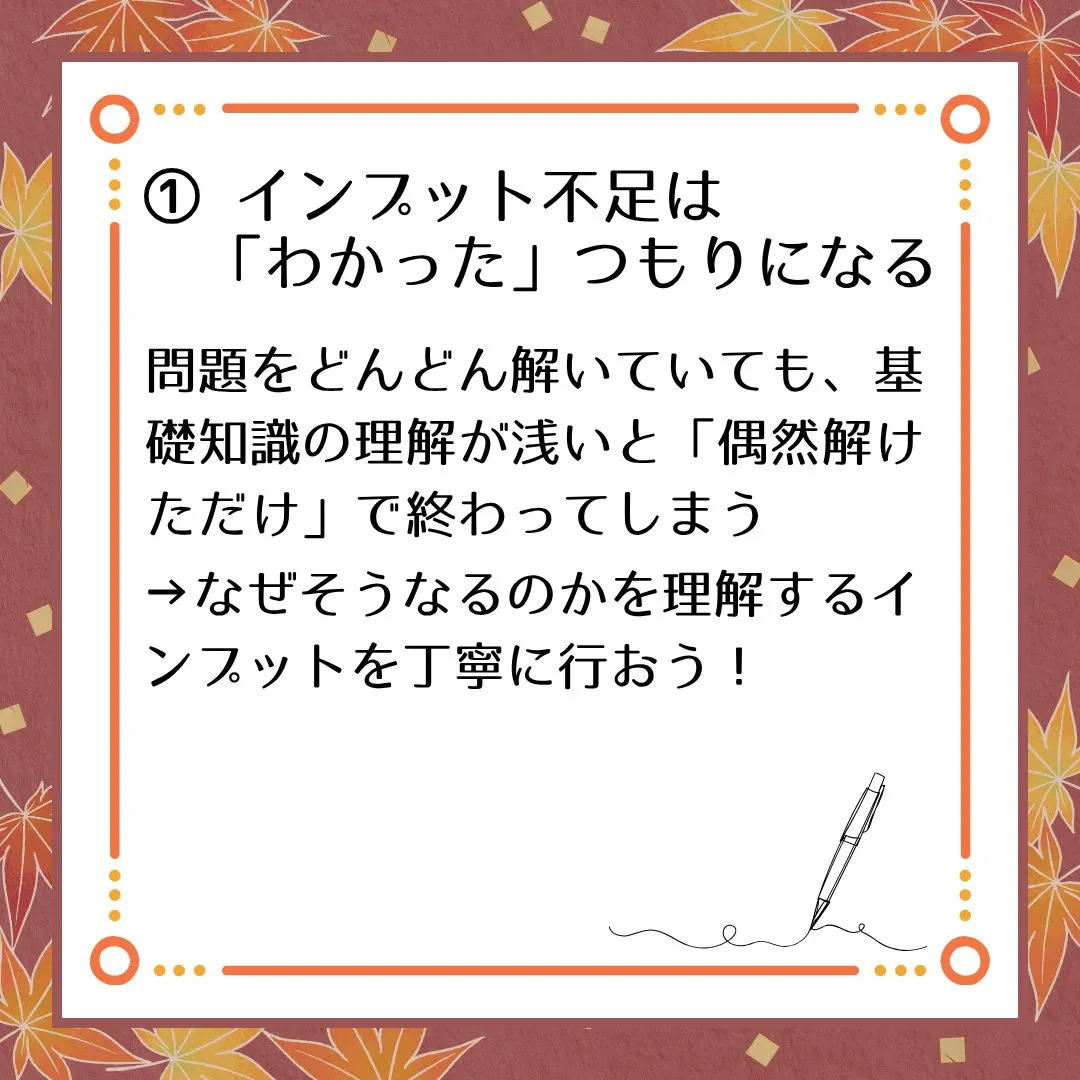 ① インプット不足は
「わかった」つもりになる
問題をどんどん解いていても、基
礎知識の理解が浅いと「偶然解け
ただけ」で終わってしまう
→なぜそうなるのかを理解するイ
ンプットを丁寧に行おう！